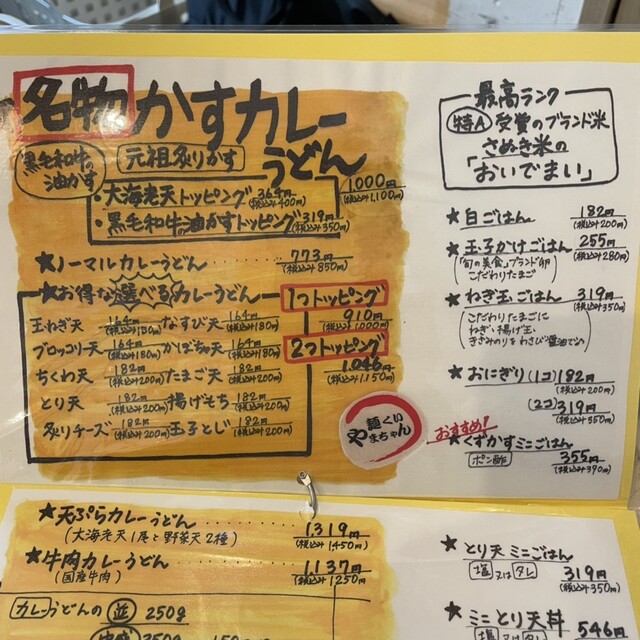 名物 かすカレーうどん
黒毛和牛の油かす
元祖炙りかす
1,000円
(税込み1,100円)
・大海老天トッピング 364円 (税込み400円)
・黒毛和牛の油かすトッピング 319円 (税込み350円)
★ノーマルカレーうどん 773円 (税込み850円)
★お得な選べるカレーうどん
1つトッピング
910円
(税込み1,000円)
2つトッピング
1,046円
(税込み1,150円)
玉ねぎ天 164円 なすび天 164円 (税込み180円)
ブロッコリー天 164円 (税込み180円) かぼちゃ天 164円 (税込み180円)
ちくわ天 182円 (税込み200円) たまご天 182円 (税込み200円)
とり天 182円 (税込み200円) 揚げもち 182円 (税込み200円)
炙りチーズ 182円 (税込み200円) 玉子とじ 182円 (税込み200円)
麺くい
やまちゃん
最高ランク
特A 受賞のブランド米
さぬき米の
「おいでまい」
★白ごはん 182円 (税込み200円)
★玉子かけごはん 255円 (税込み280円)
(「旬の美食」ブランド卵
こだわりたまご)
★ねぎ玉ごはん 319円 (税込み350円)
(こだわりたまごに
ねぎ・揚げ玉
きざみのりをわさび醤油で)
★おにぎり (1コ) 182円 (税込み200円)
(2コ) 319円 (税込み350円)
おすすめ!
★くずかすミニごはん
ポン酢 355円 (税込み390円)
★天ぷらカレーうどん 1,319円 (税込み1,450円)
(大海老天1尾と野菜天2種)
★牛肉カレーうどん 1,137円 (税込み1250円)
(国産牛肉)
カレーうどんの 並 250g
★とり天ミニごはん
塩 又は タレ 319円 (税込み350円)
★ミニとり天丼
塩 又は タレ 546円